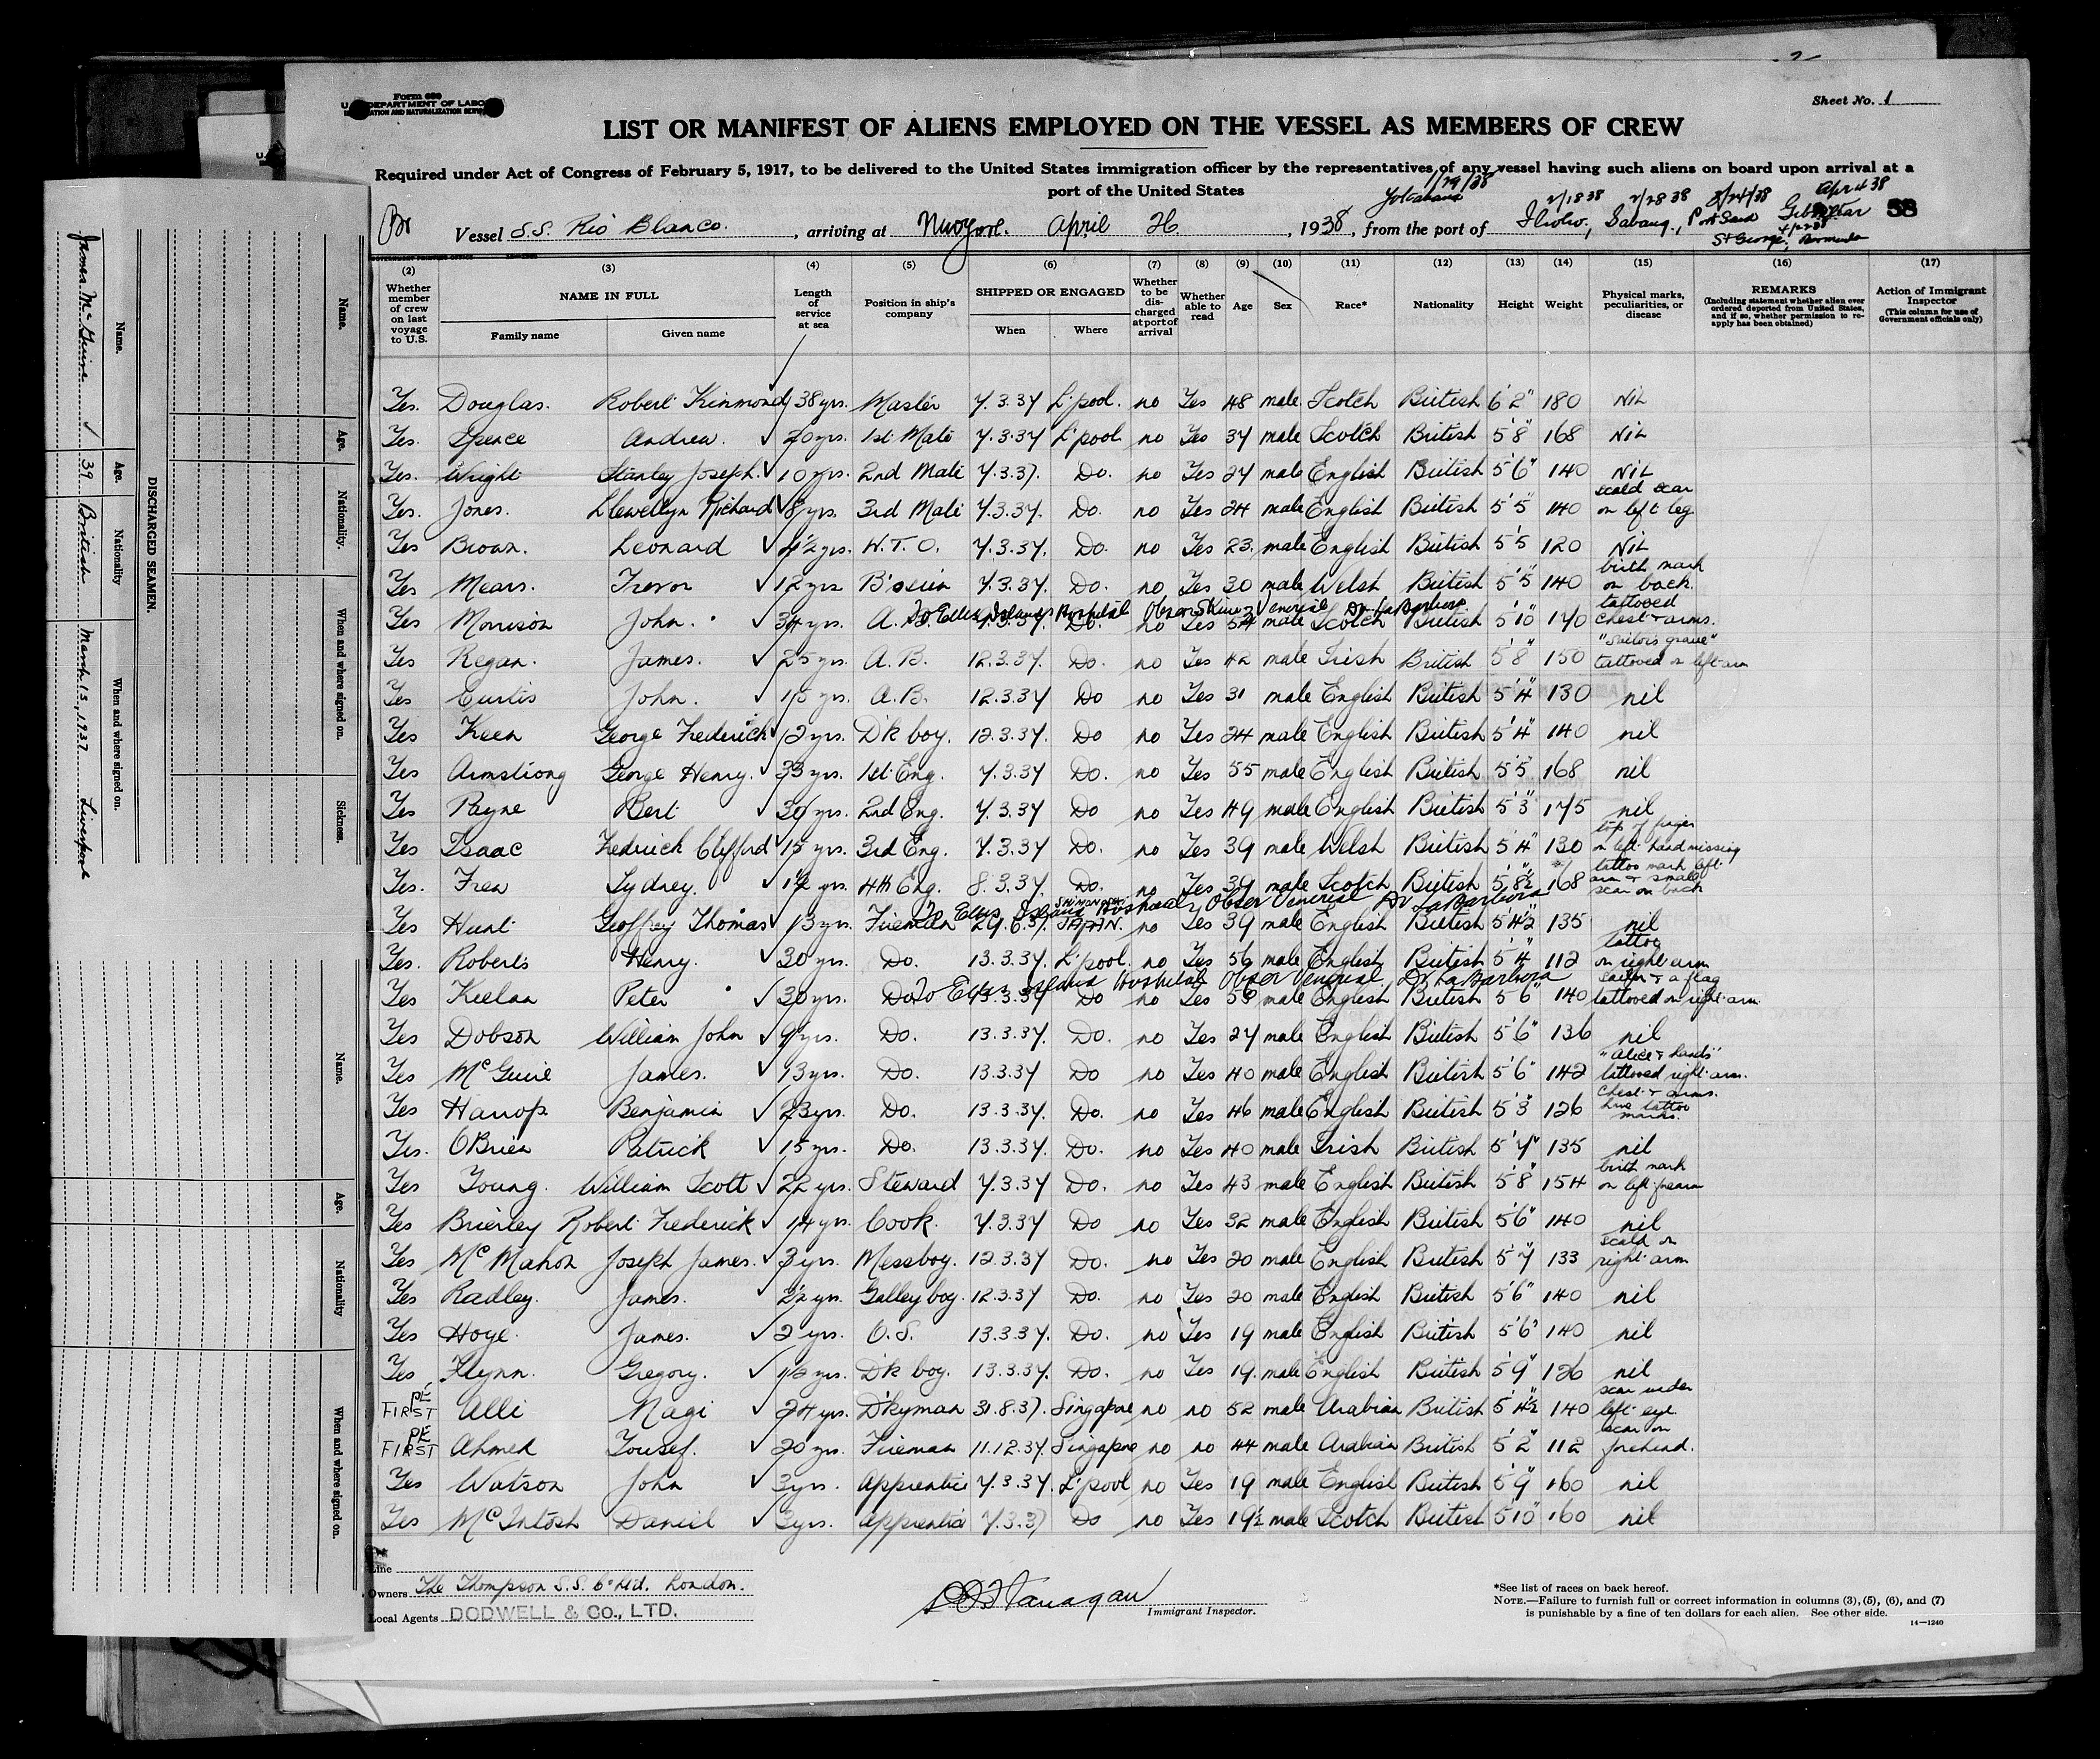 Form 689
U. S. DEPARTMENT OF LABOR
IMMIGRATION AND NATURALIZATION SERVICE
Sheet No. 1
LIST OR MANIFEST OF ALIENS EMPLOYED ON THE VESSEL AS MEMBERS OF CREW
Required under Act of Congress of February 5, 1917, to be delivered to the United States immigration officer by the representatives of any vessel having such aliens on board upon arrival at a
port of the United States
Yokohama 1/29/38 2/18 38 2/28 38 3/24/38 Apr 4 38
Br Vessel S.S. Rio Blanco. , arriving at New York. April 26 , 1938, from the port of Iloilo, Sabang, Port Said Gibraltar 38
St George, Bermuda
(2) (3) (4) (5) (6) (7) (8) (9) (10) (11) (12) (13) (14) (15) (16) (17)
Whether member of crew on last voyage to U.S. NAME IN FULL Family name Given name Length of service at sea Position in ship's company SHIPPED OR ENGAGED When Where Whether to be discharged at port of arrival Whether able to read Age Sex Race* Nationality Height Weight Physical marks, peculiarities, or disease REMARKS (Including statement whether alien ever ordered deported from United States, and if so, whether permission to reapply has been obtained) Action of Immigrant Inspector (This column for use of Government officials only)
Yes. Douglas. Robert Kinmond 38 yrs. Master 7.3.37 L'pool. no Yes 48 male Scotch British 6'2" 180 Nil
Yes. Spence Andrew. 20 yrs. 1st Mate 7.3.37 L'pool no Yes 37 male Scotch British 5'8" 168 Nil
Yes. Wright Stanley Joseph. 10 yrs. 2nd Mate 7.3.37. Do. no Yes 27 male English British 5'6" 140 Nil
Yes. Jones. Llewellyn Richard 8 yrs. 3rd Mate 7.3.37. Do. no Yes 24 male English British 5'5" 140 scald scar on left leg
Yes Brown. Leonard 4½ yrs. W.T.O. 7.3.37. Do. no Yes 23. male English British 5'5 120 Nil
Yes Mears. Trevor 12 yrs B'osun 7.3.37. Do. no Yes 30 male Welsh British 5'5" 140 birth mark on back.
To Ellis Island Hospital Observation Venereal Dr LaBarbera
Yes Morrison John. 34 yrs. A.B. 7.3.37. Do. no Yes 54 male Scotch British 5'10" 170 tattooed chest & arms.
Yes Regan. James. 25 yrs. A.B. 12.3.37. Do. no Yes 42 male Irish British 5'8" 150 "Sailor's grave" tattooed on left arm
Yes Curtis John. 15 yrs. A.B. 12.3.37 Do no Yes 31 male English British 5'4" 130 nil
Yes Keen George Frederick 12 yrs. D'k boy. 12.3.37. Do no Yes 24 male English British 5'4" 140 nil
Yes Armstrong George Henry. 33 yrs. 1st Eng. 7.3.37 Do. no Yes 55 male English British 5'5" 168 nil
Yes Payne Bert 30 yrs. 2nd Eng. 7.3.37 Do no Yes 49 male English British 5'3" 175 nil
Yes Isaac Fedrick Clifford 15 yrs. 3rd Eng. 7.3.37 Do. no Yes 39 male Welsh British 5'4" 130 top of finger on left hand missing
Yes. Frew Sydney. 12 yrs. 4th Eng. 8.3.37. Do. no Yes 39 male Scotch British 5'8½" 168 tattoo mark left arm & small scar on back
To Ellis Island Hospital Obser Venereal Dr LaBarbera
Yes Hunt Geoffrey Thomas 13 yrs. Fireman 29.6.37. JAPAN. no Yes 39 male English British 5'4½" 135 nil
Yes. Roberts Henry. 30 yrs. Do. 13.3.37. L'pool. no Yes 56 male English British 5'4" 112 tattoo on right arm
To Ellis Island Hospital Obser Venereal. Dr LaBarbera
Yes Keelan Peter 30 yrs. Do. 13.3.37 Do no Yes 58 male English British 5'6" 140 sailor & a flag tattooed on right arm
Yes Dobson William John 9 yrs. Do. 13.3.37. Do. no Yes 27 male English British 5'6" 136 nil
Yes McGuire James. 13 yrs. Do. 13.3.37 Do no Yes 40 male English British 5'6" 142 "Alice & hands" tattooed right arm.
Yes Harrop Benjamin 23 yrs. Do. 13.3.37. Do. no Yes 46 male English British 5'3" 126 chest & arms. tattoo marks.
Yes. OBrien Patrick 15 yrs. Do. 13.3.37. Do. no Yes 40 male Irish British 5'7" 135 nil
Yes Young. William Scott 22 yrs. Steward 7.3.37 Do. no Yes 43 male English British 5'8" 154 birth mark on left forearm
Yes Brierley Robert Frederick 14 yrs. Cook. 7.3.37 Do no Yes 32 male English British 5'6" 140 nil
Yes McMahon Joseph James. 3 yrs. Messboy. 12.3.37 Do. no Yes 20 male English British 5'7" 133 scald on right arm
Yes Radley. James. 2½ yrs. Galley boy. 12.3.37 Do. no Yes 20 male English British 5'6" 140 nil
Yes Hoye. James. 2 yrs. O.S. 13.3.37. Do. no Yes 19 male English British 5'6" 140 nil
Yes Flynn. Gregory. yrs. D'k boy. 13.3.37. Do. no Yes 19. male English British 5'9" 126 nil
PE FIRST Alli Nagi 24 yrs. D'kyman 31.8.37. Singapore no no 52 male Arabian British 5'4½" 140 scar under left eye.
PE FIRST Ahmed Yousef. 20 yrs. Fireman 11.12.37. Singapore no no 44 male Arabian British 5'2" 112 scar on forehead.
Yes Watson John 3 yrs. Apprentice 7.3.37. L'pool no Yes 19 male English British 5'9" 160 nil
Yes McIntosh Daniel 3 yrs. Apprentice 7.3.37 Do no Yes 19½ male Scotch British 5'10" 160 nil
Line
Owners The Thompson S.S. Co Ltd. London.
Local Agents DODWELL & CO., LTD.
Immigrant Inspector.
*See list of races on back hereof.
NOTE.—Failure to furnish full or correct information in columns (3), (5), (6), and (7)
is punishable by a fine of ten dollars for each alien. See other side.
14—1240
DISCHARGED SEAMEN.
Name. Age. Nationality. When and where signed on. Sickness.
Name. Age. Nationality When and where signed on.
James McGuire 39. British March 13, 1937 Liverpool
Name. Age. Nationality When and where signed on.